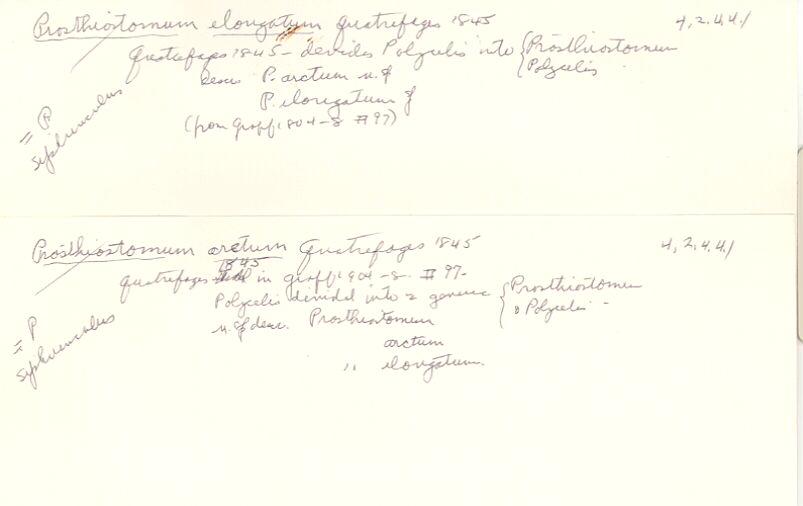 Prosthiostomum elongatum Quatrefages 1845 4,2.4.4.1
Quatrefages 1845 - devides Polycelis into { Prosthiostomum
Polycelis
P. arctum n. g
P. elongatum g
(from Graff 1904-8 #97)
= P
siphunculus
Prosthiostomum arctum Quatrefages 1845 4,2.4.4.1
1845
Quatrefages in Graff 1904-8. #97-
Polycelis divided into 2 genera { Prosthiostomum
" Polycelis -
desc. Prosthiostomum
arctum
" elongatum.
= P
siphunculus